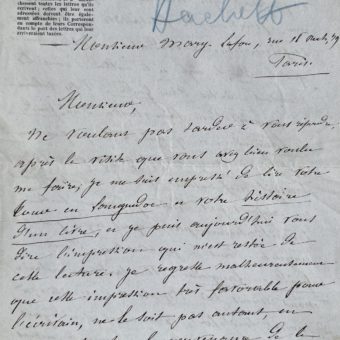 chement toutes les lettres qu'ils
écrivent ; celles qui leur sont
adressées doivent être également
affranchies ; ils porteront
en compte de leurs Correspondants
le port des lettres qui leur
arriveraient taxées.
Hachett
Monsieur Mary Lafon, rue
Paris.
Monsieur,
Ne voulant pas tarder à vous répondre
après la visite que vous avez bien voulu
me faire, je me suis empressé de lire votre
en Languedoc et votre histoire
d'un livre, et je puis aujourd'hui vous
dire l'impression qui m'est restée de
cette lecture. Je regrette malheureusement
que cette impression très favorable pour
l'écrivain, ne le soit pas autant en
de la